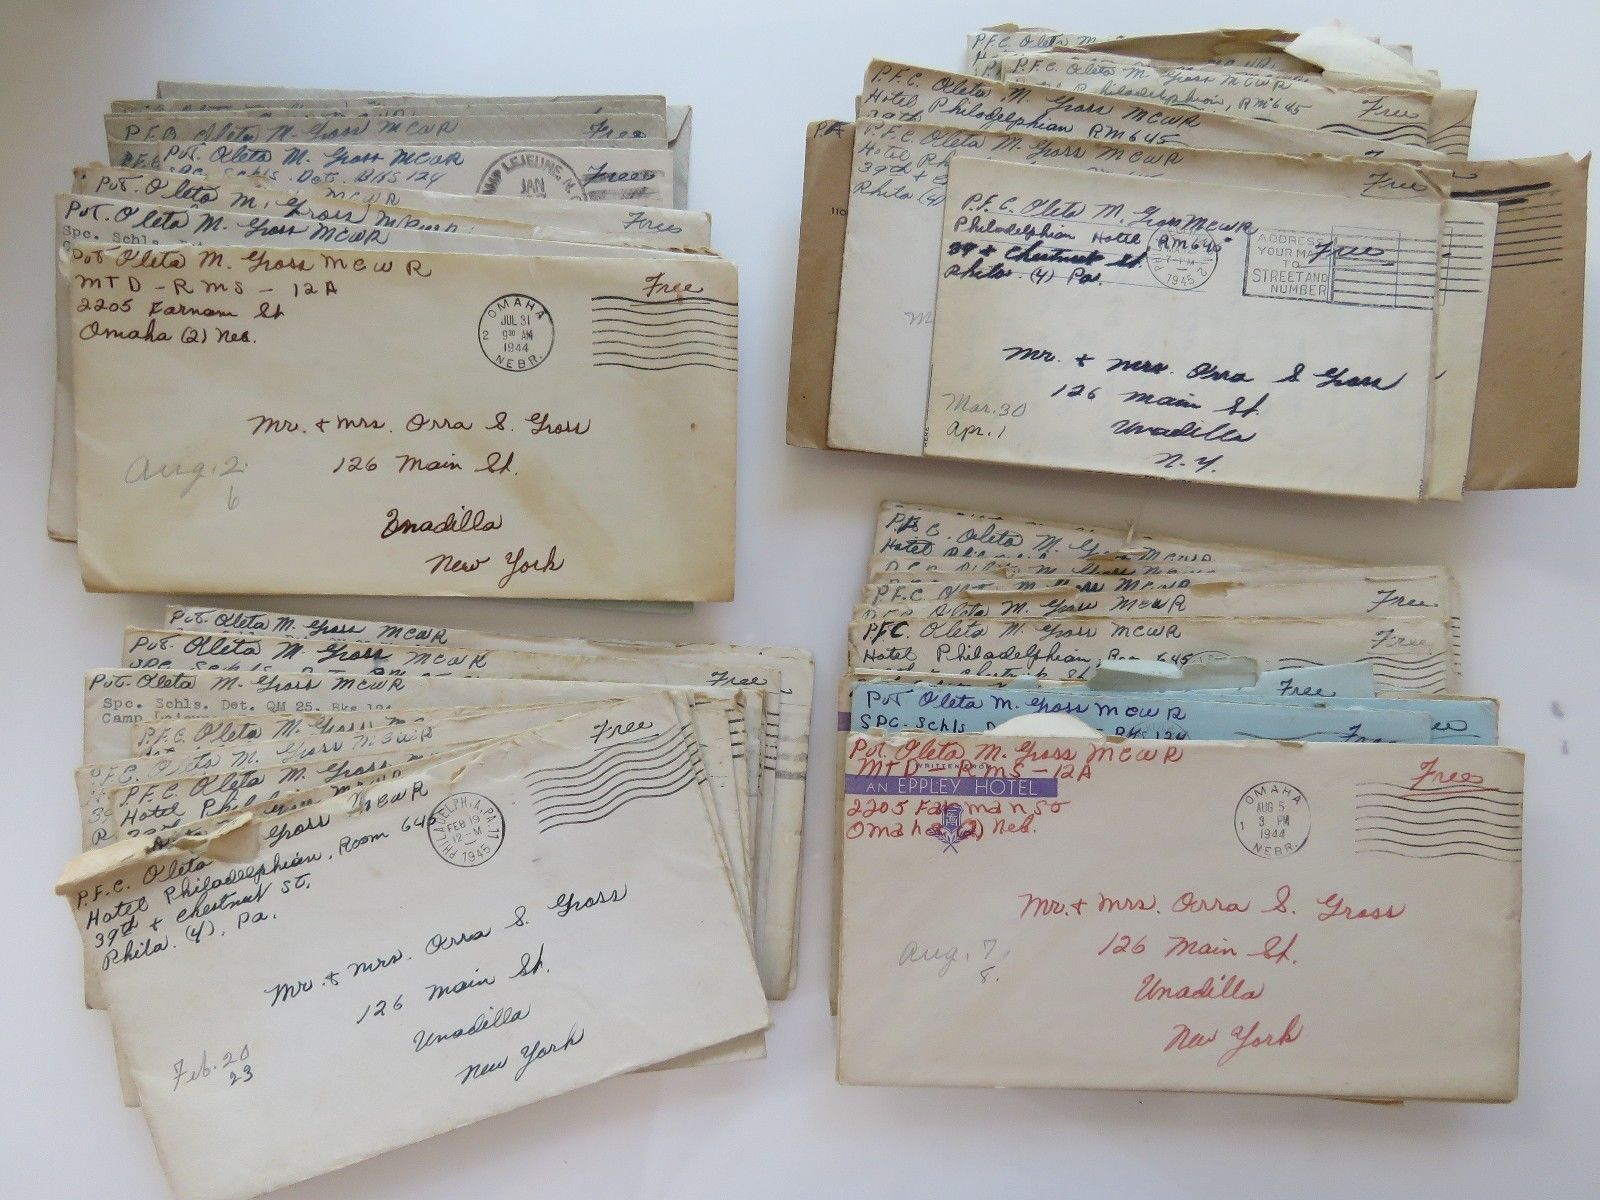 P.F.C. Oleta M. Gross MCWR
Free
Pvt. Oleta M. Gross MCWR
Spc. Schls. Det. Bks 124
LEJEUNE, N.
JAN
Free
Pvt. Oleta M. Gross
MCWR
Pvt. Oleta M. Gross MCWR
Free
Spc. Schls.
Pvt. Oleta M. Gross MCWR
MTD - RMS - 12A
2205 Farnam St
Omaha (2) Neb.
OMAHA
JUL 31
9 30 AM
1944
2
NEBR.
Free
Mr. + Mrs. Orra S. Gross
126 Main St.
Unadilla
New York
Aug. 2.
6
P.F.C. Oleta M.
P.F.C. Oleta M. Gross MCWR
Philadelphian, RM 645
P.F.C. Oleta M. Gross MCWR
Hotel Philadelphian RM 645
39th
Free
P.F.C. Oleta M. Gross MCWR
Hotel Ph
39th +
Phila (4)
Free
110
P.F.C. Oleta M. Gross MCWR
Philadelphian Hotel RM 645
39 + Chestnut St.
Phila. (4) Pa.
1945
ADDRESS
YOUR MA
TO
STREET AND
NUMBER
Free
Mr. + Mrs. Orra S Gross
126 Main St.
Unadilla
N.Y.
Mar. 30
Apr. 1
Pvt. Oleta M. Gross MCWR
Pvt. Oleta M. Gross MCWR
Spc. Schls. Det.
Pvt. Oleta M. Gross MCWR
Free
Spc. Schls. Det. QM 25. Bks 124
Camp Lejeun
P.F.C. Oleta M. Gross
P.F.C. Oleta M. Gross MCWR
P.F.C. Oleta M. Gross
Hotel Philadelphian
Gross MCWR
P.F.C. Oleta
Hotel Philadelphian, Room 645
39th + Chestnut St.
Phila. (4), Pa.
PHILADELPHIA, PA. 11
FEB 19
12 - M
1945
Free
Mr. + Mrs. Orra S. Gross
126 Main St.
Unadilla
New York
Feb. 20
23
P.F.C. Oleta M. Gross MCWR
Hotel
P.F.C.
MCWR
P.F.C. Oleta M. Gross MCWR
Free
PFC. Oleta M. Gross MCWR
Hotel Philadelphian, Room 645
Chestnut St
Free
Free
Pvt Oleta M. Gross MCWR
Spc. Schls. Bks 124
Free
Pvt. Oleta M. Gross MCWR
MTD - RMS - 12A
WRITTEN FROM
AN EPPLEY HOTEL
2205 Farnam St
Omaha (2) Neb.
OMAHA
AUG 5
3 PM
1944
1
NEBR.
Free
Mr. + Mrs. Orra S. Gross
126 Main St.
Unadilla
New York
Aug. 7.
8.